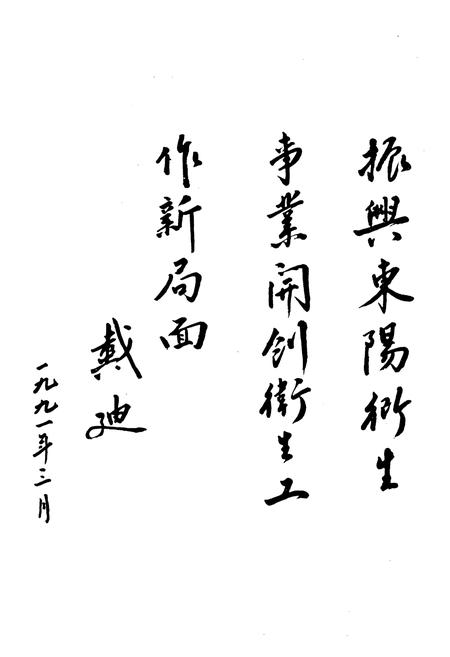 振興東陽衛生
事業開创衛生工
作新局面
戴迪
一九九一年三月